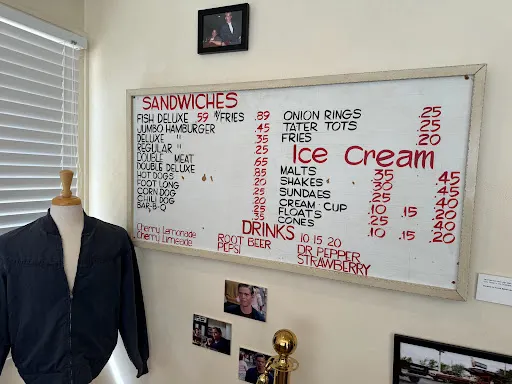 SANDWICHES
FISH DELUXE 59 W/FRIES .89
JUMBO HAMBURGER .45
DELUXE " .35
REGULAR " .25
DOUBLE MEAT .65
DOUBLE DELUXE .85
HOT DOGS .20
FOOT LONG .25
CORN DOG .20
CHILI DOG .25
BAR-B-Q .35
Cherry Lemonade
Cherry Limeade
ONION RINGS .25
TATER TOTS .25
FRIES .20
Ice Cream
MALTS 35 45
SHAKES 30 .45
SUNDAES 25 .40
CREAM-CUP 10 .15 .20
FLOATS 25 .40
CONES 10 .15 .20
DRINKS 10 15 20
ROOT BEER
PEPSI
DR. PEPPER
STRAWBERRY